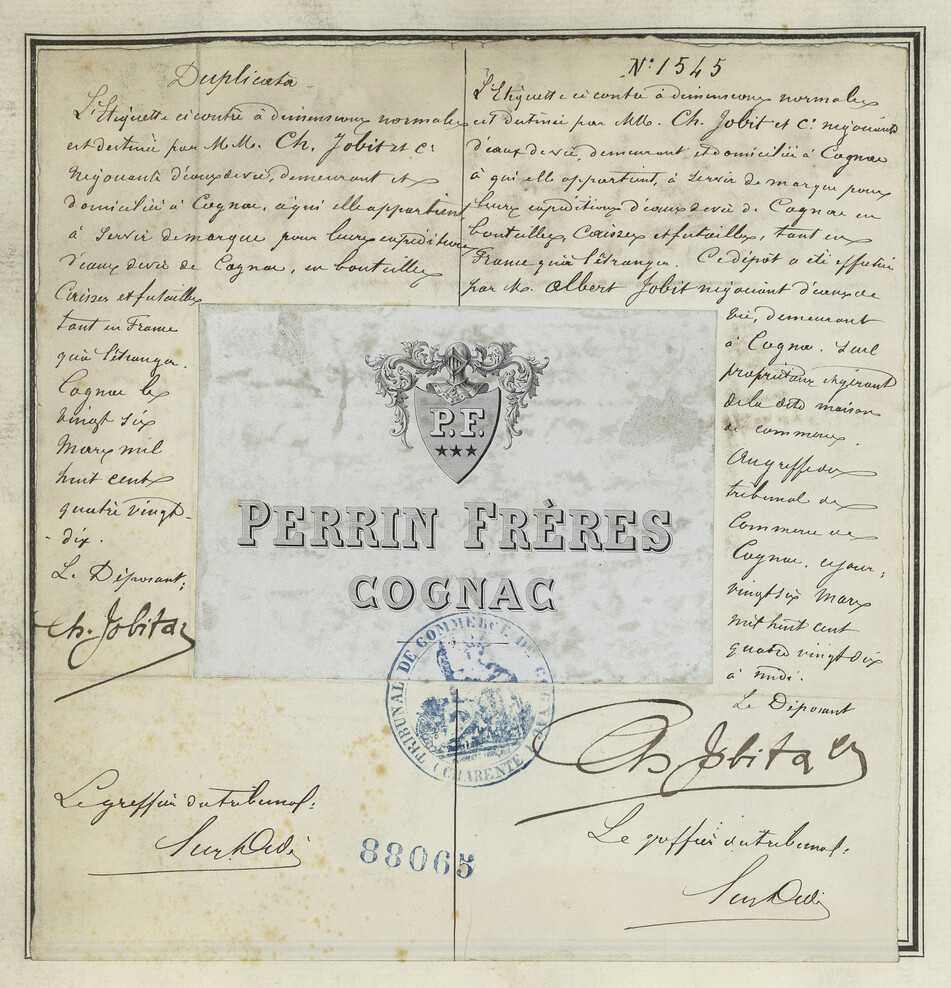 Duplicata
L'Etiquette ci contre à dimensions normales
est destinée par M.M. Ch. Jobit et Cie
Négociants d'eaux de vie, demeurant et
domiciliés à Cognac, à qui elle appartient
à servir de marque pour leurs expéditions
d'eaux de vie de Cognac, en bouteilles
Caisses et futailles
tant en France
qu'à l'étranger.
Cognac le
vingt six
Mars mil
huit cent
quatre vingt
- dix.
Le Déposant:
Ch. Jobit & Cie
Le greffier du tribunal:
N° 1545
L'Etiquette ci contre à dimensions normales
est destinée par MM. Ch. Jobit et Cie négociants
d'eaux de vie, demeurant et domiciliés à Cognac
à qui elle appartient, à servir de marque pour
leurs expéditions d'eaux de vie de Cognac en
bouteilles, Caisses et futailles, tant en
France qu'à l'étranger. Ce dépôt a été effectué
par M. Albert Jobit négociant d'eaux de
vie, demeurant
à Cognac. Seul
propriétaire et gérant
de la dite maison
de commerce.
Au greffe du
tribunal de
Commerce de
Cognac, ce jour;
vingt six Mars
mil huit cent
quatre vingt dix
à midi.
Le Déposant
Ch Jobit & Cie
Le greffier du tribunal:
P.F.
★★★
PERRIN FRÈRES
COGNAC
TRIBUNAL DE COMMERCE DE COGNAC
(CHARENTE)
88065